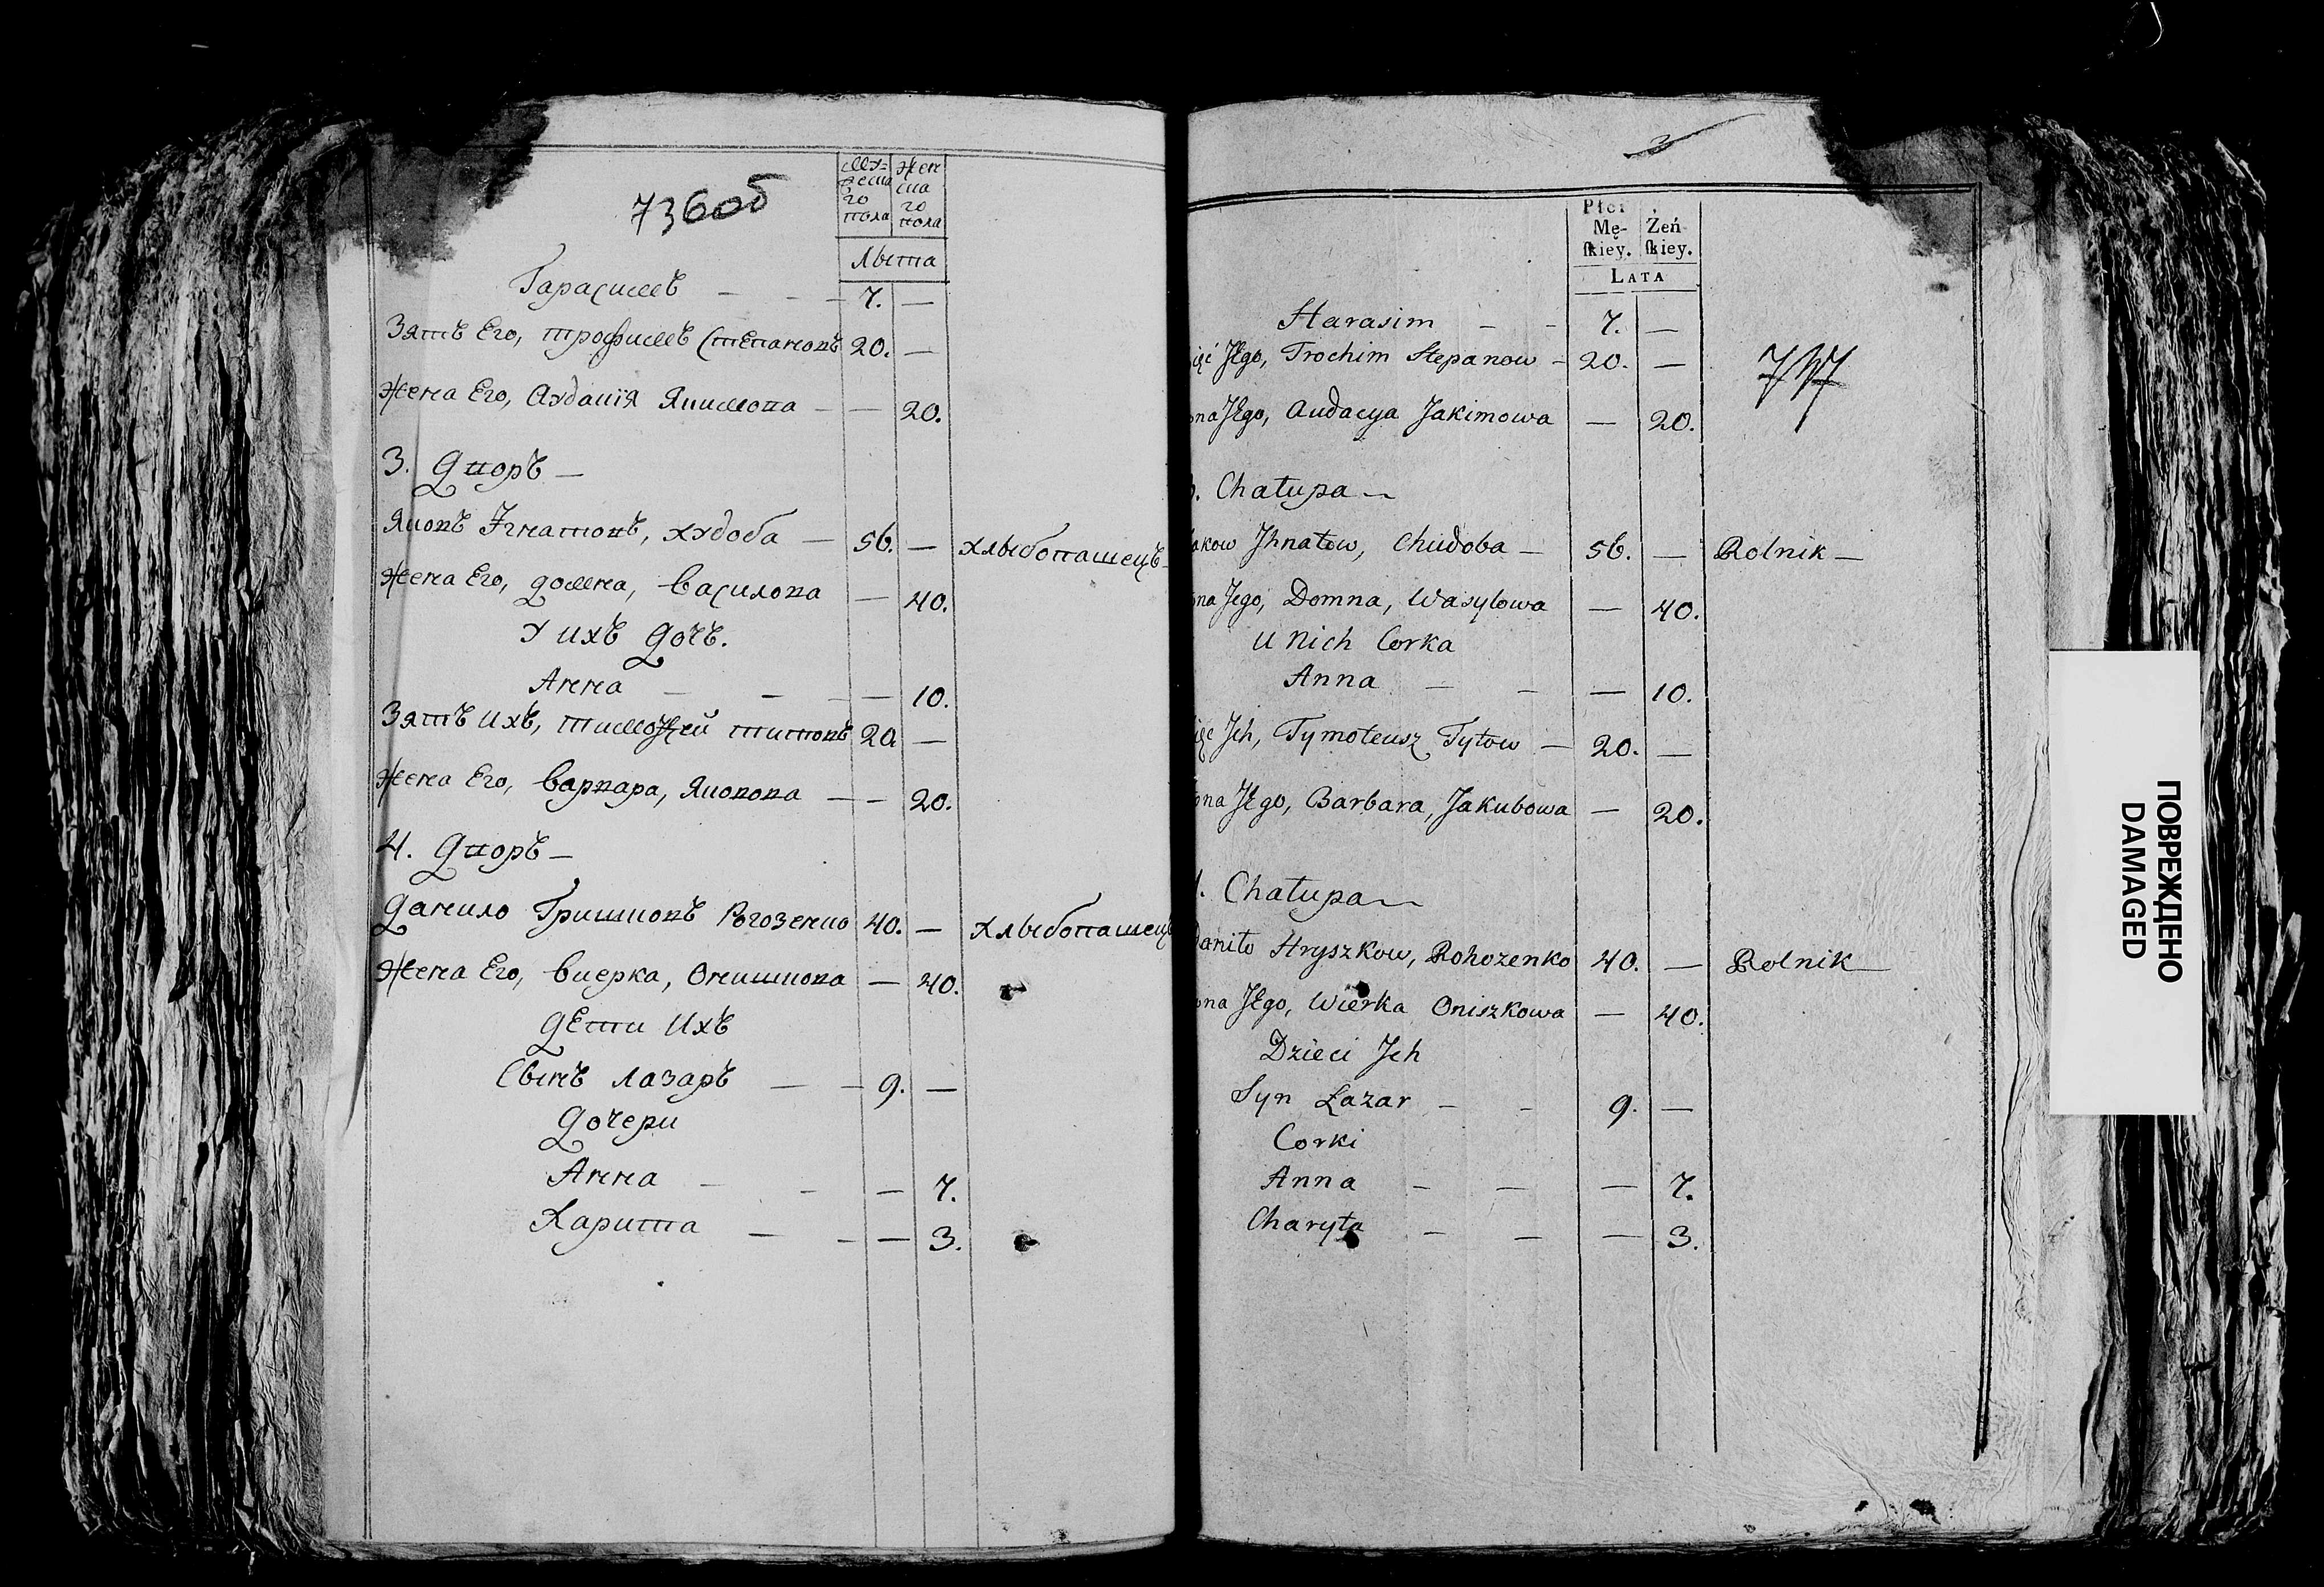 736об
Мужеска го пола
Женска го пола
Лѣта
Гарасимъ — — — 7. —
Зятъ Его, Трофимъ Степановъ 20. —
Жена Его, Аудація Якимова — — 20.
3. Дворъ —
Яковъ Игнатовъ, худоба — 56. — Хлѣбопашецъ —
Жена Его, Домна, Василова — 40.
У ихъ дочъ.
Анна — — — — 10.
Зятъ ихъ, Тимофей Титовъ 20 —
Жена Его, Варвара, Яковова — — 20.
4. Дворъ —
Данило Гришковъ Рогозенко 40. — Хлѣбопашецъ
Жена Его, Виерка, Онишкова — 40.
Дети ихъ
Сынъ Лазаръ — — 9. —
Дочери
Анна — — — 7.
Харита — — — 3.
3
Płci
Mę-
ſkiey.
Żeń-
ſkiey.
LATA
Harasim — — 7. —
ięć Jego, Trochim Stepanow — 20. —
737
ona Jego, Audacya Jakimowa — 20.
3. Chałupa —
akow Jhnatow, Chudoba — 56. — Rolnik —
ona Jego, Domna, Wasylowa — 40.
u Nich Corka
Anna — — — 10.
ięc Jch, Tymoteusz Tytow — 20. —
ona Jego, Barbara, Jakubowa — 20.
4. Chałupa —
Daniło Hryszkow, Rohozenko 40. — Rolnik —
ona Jego, Wierka Oniszkowa — 40.
Dzieci Jch
Syn Łazar — — 9. —
Corki
Anna — — — 7.
Charyta — — — 3.
ПОВРЕЖДЕНО
DAMAGED